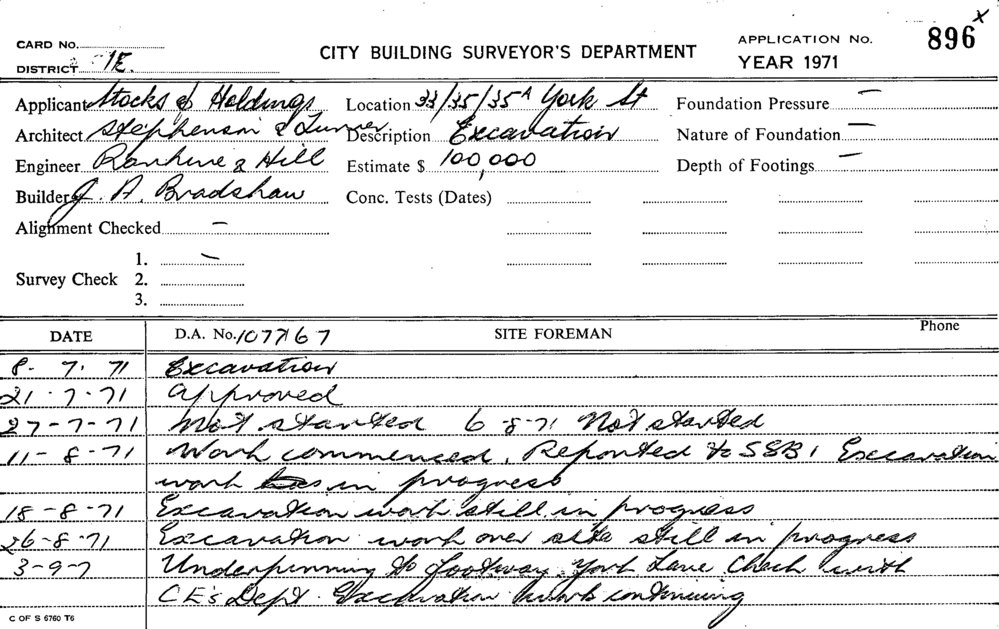 CARD No.
DISTRICT 1E.
CITY BUILDING SURVEYOR'S DEPARTMENT
APPLICATION No. 896 x
YEAR 1971
Applicant Stocks & Holdings Location 33/35/35A York St Foundation Pressure —
Architect Stephenson & Turner Description Excavation Nature of Foundation —
Engineer Rankine & Hill Estimate $ 100,000 Depth of Footings —
Builder J. A. Bradshaw Conc. Tests (Dates)
Alignment Checked —
1. —
Survey Check 2.
3.
DATE D.A. No. 1077/67 SITE FOREMAN Phone
8- 7. 71 Excavation
21-7-71 Approved
27-7-71 Not started 6-8-71 Not started
11-8-71 Work commenced. Reported to SSB1 Excavation
work in progress
18-8-71 Excavation work still in progress
26-8-71 Excavation work over site still in progress
3-9-7 Underpinning to footway York Lane Check with
CE's Dept. Excavation work continuing
C OF S 6760 T6